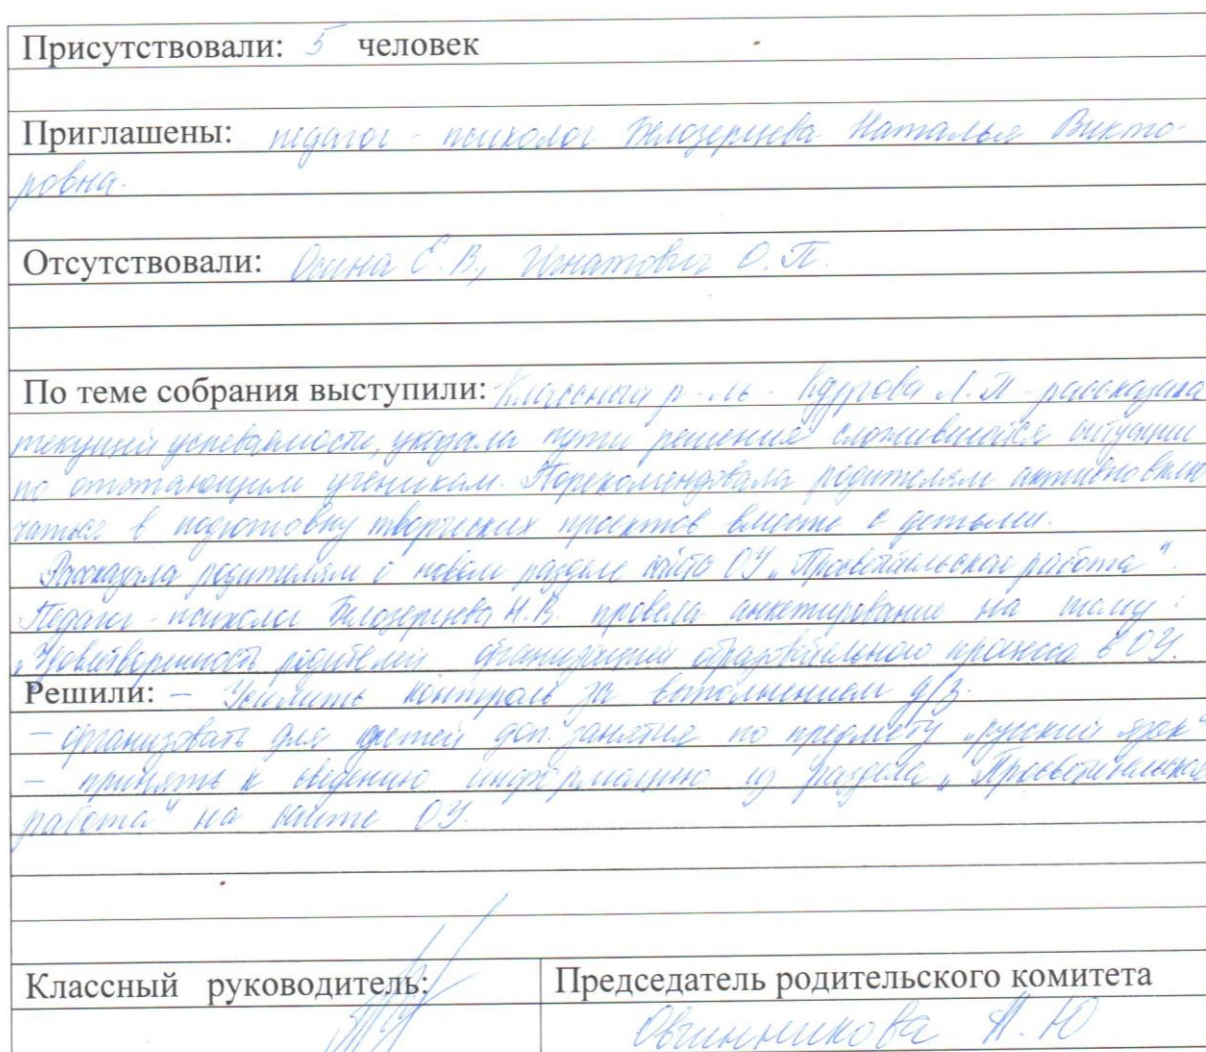 Присутствовали: 5 человек
Приглашены: педагог - психолог Белозерцева Наталья Викто-
ровна.
Отсутствовали: Осина Е.В., Игнатович О.П.
По теме собрания выступили: Классный р-ль - Л.П. - рассказала
текущей успеваемости, указала пути решения сложившейся ситуации
по отстающим ученикам. Порекомендовала родителям активно вклю
чаться в подготовку творческих проектов вместе с детьми.
Рассказала родителям о новом разделе сайта ОУ „Просветительская работа".
Педагог - психолог Белозерцева Н.В. провела анкетирование на тему:
„Удовлетворенность родителей организацией образовательного процесса в ОУ.
Решили: - Усилить контроль за выполнением д/з.
- организовать для детей доп. занятия по предмету „русский язык"
- принять к сведению информацию из раздела „Просветительская
работа" на сайте ОУ.
Классный руководитель:
Председатель родительского комитета
Овчинникова А.Ю